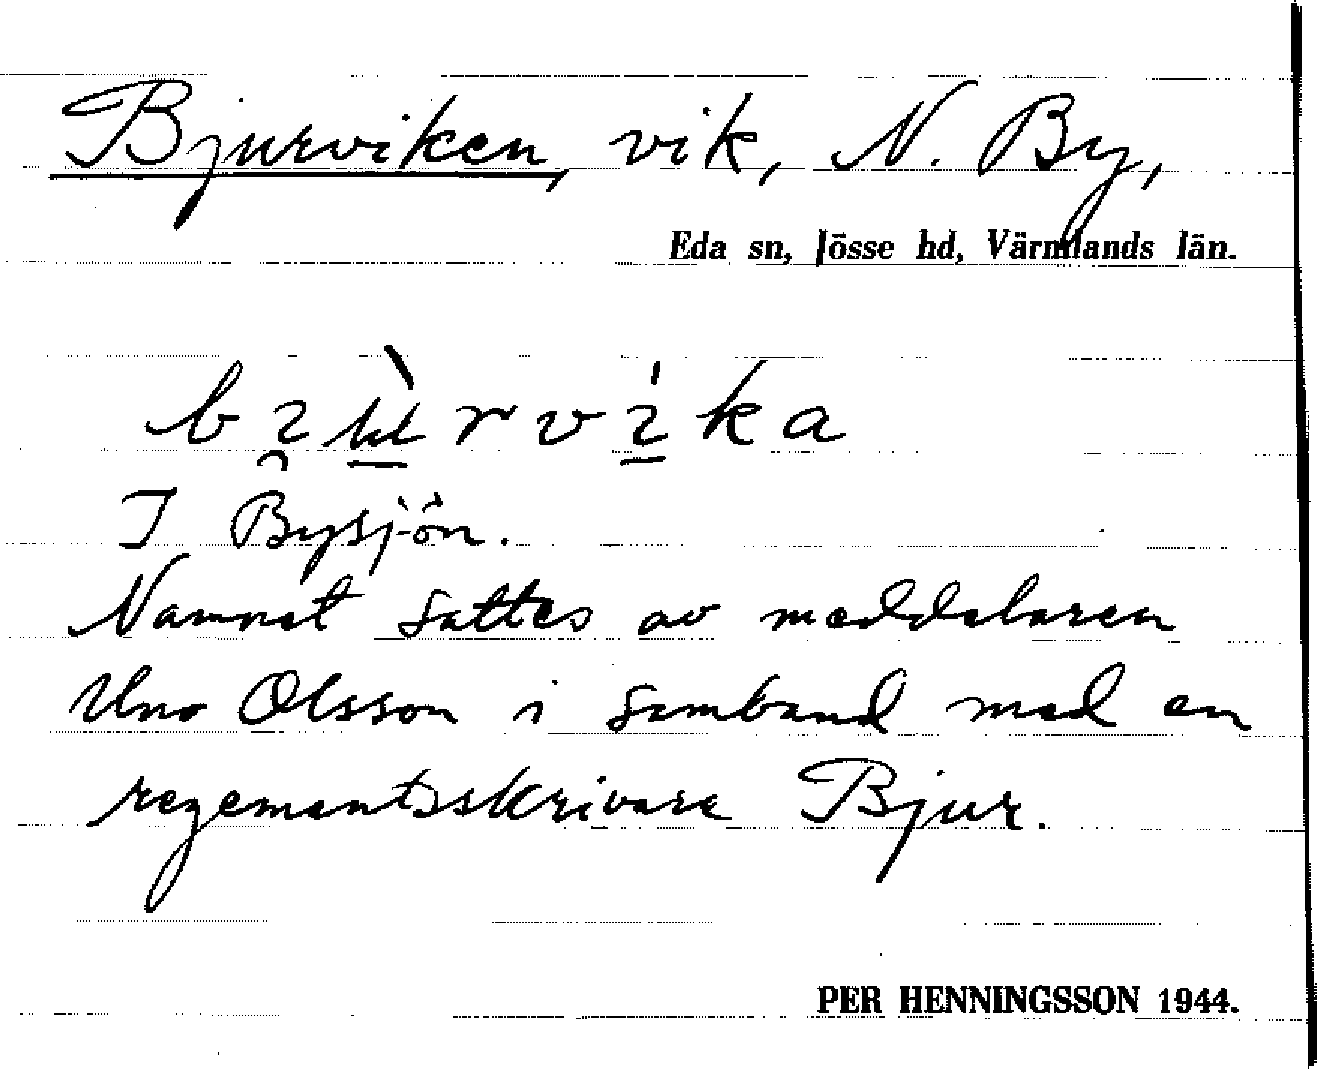 Bjurviken, vik, N. By,
Eda sn, Jösse hd, Värmlands län.
I Bysjön.
Namnet sattes av meddelaren
Uno Olsson i samband med en
regementsskrivare Bjur.
PER HENNINGSSON 1944.